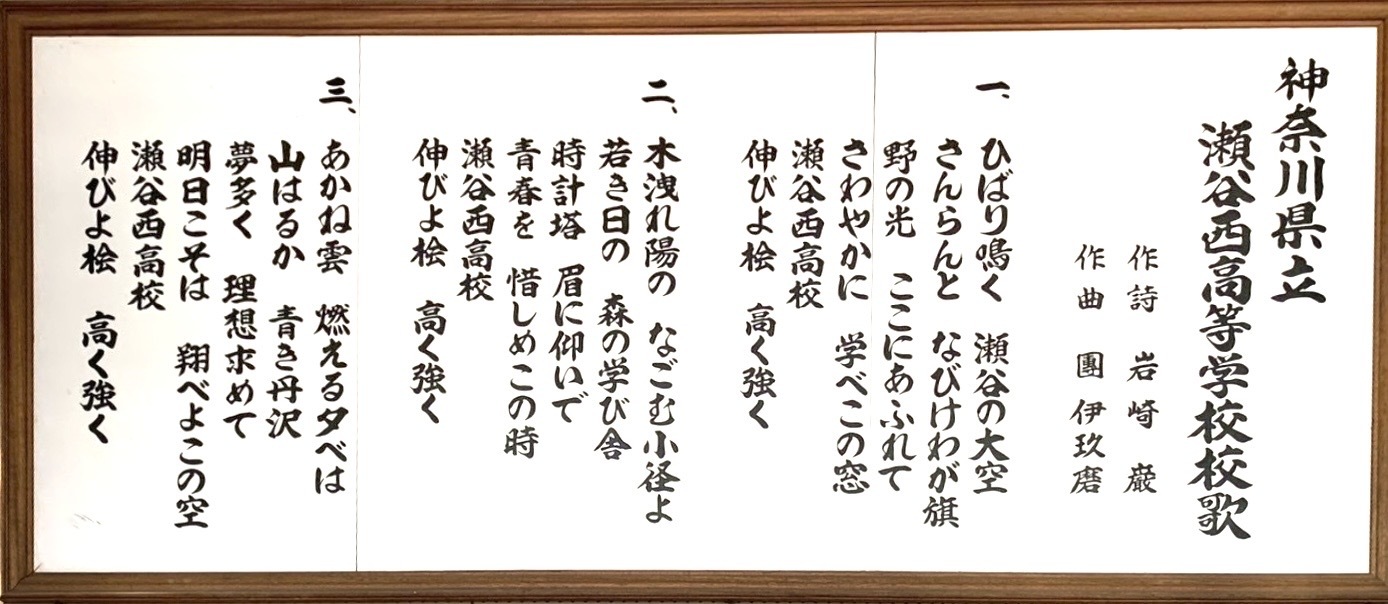 神奈川県立
瀬谷西高等学校校歌
作詩 岩崎 巌
作曲 團伊玖磨
一、ひばり鳴く 瀬谷の大空
さんらんと なびけわが旗
野の光 ここにあふれて
さわやかに 学べこの窓
瀬谷西高校
伸びよ桧 高く強く
二、木洩れ陽の なごむ小径よ
若き日の 森の学び舎
時計塔 眉に仰いで
青春を 惜しめこの時
瀬谷西高校
伸びよ桧 高く強く
三、あかね雲 燃える夕べは
山はるか 青き丹沢
夢多く 理想求めて
明日こそは 翔べよこの空
瀬谷西高校
伸びよ桧 高く強く